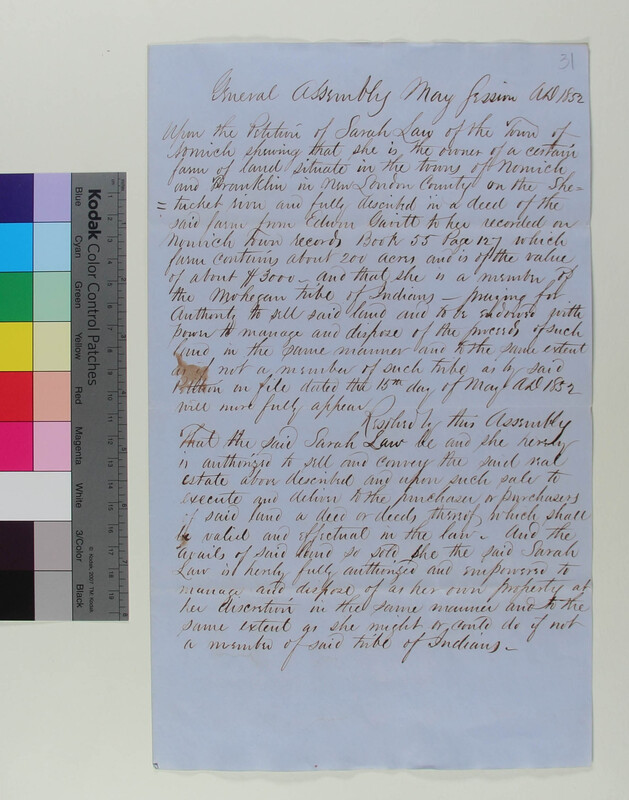 31
General Assembly May Session AD 1852
Upon the Petition of Sarah Law of the Town of
Norwich shewing that she is the owner of a certain
farm of land situate in the towns of Norwich
and Franklin in New London County on the She=
=tucket river and fully described in a deed of the
said farm from Edwin to her recorded on
Norwich Town records Book 55 Page 127 which
farm contains about 200 acres and is of the value
of about $3000 - and that she is a member of
the Mohegan tribe of Indians - praying for
Authority to sell said land and to be endowed with
power to manage and dispose of the proceeds of such
land in the same manner and to the same extent
as if not a member of such tribe as by said
Petition on file dated the 15th day of May AD 1852
will more fully appear
Resolved by this Assembly
That the said Sarah Law be and she hereby
is authorized to sell and convey the said real
estate above described and upon such sale to
execute and deliver to the purchaser or purchasers
of said land a deed or deeds thereof which shall
be valid and effectual in the law - And the
avails of said land so sold she the said Sarah
Law is hereby fully authorized and empowered to
manage and dispose of as her own property at
her discretion in the same manner and to the
same extent as she might or could do if not
a member of said tribe of Indians -
Kodak Color Control Patches
Blue
Cyan
Green
Yellow
Red
Magenta
White
3/Color
Black
© Kodak, 2007 TM: Kodak